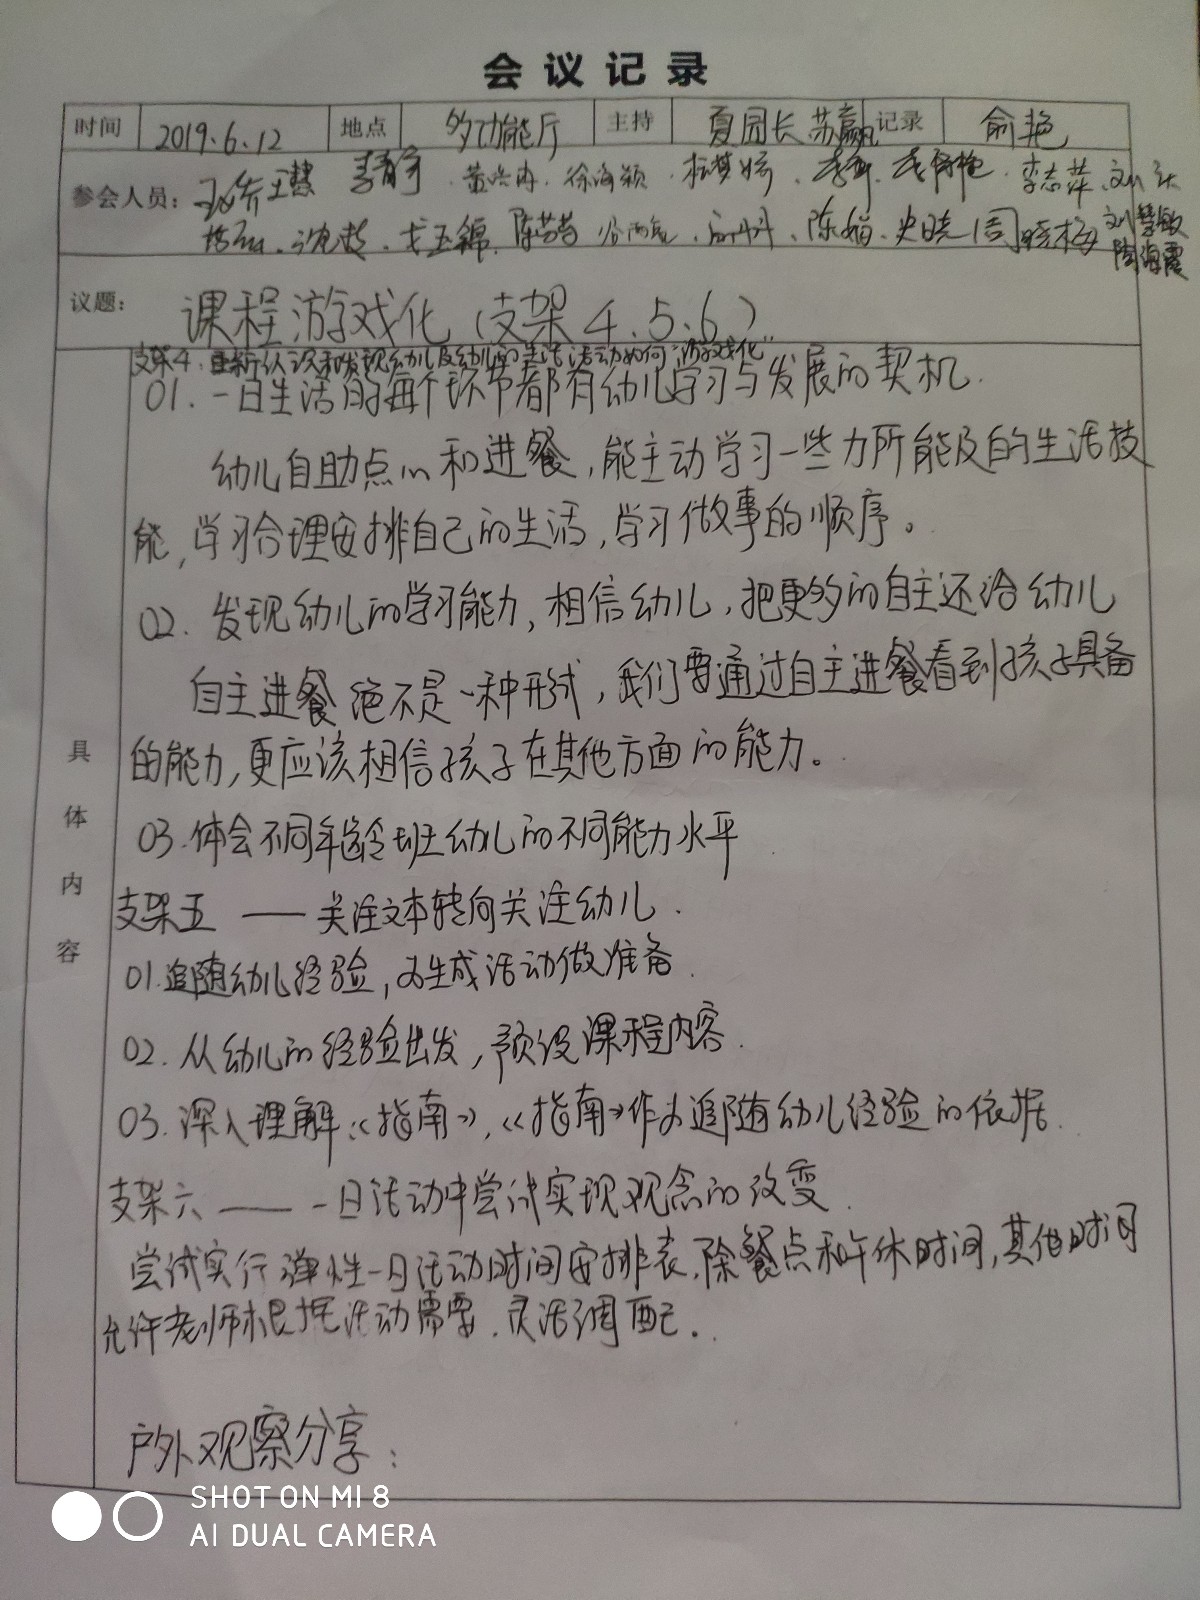 会议记录
时间 2019.6.12 地点 多功能厅 主持 夏园长 苏赢 记录 俞艳
参会人员: 王慧 李志萍
沈赵 陈芳芳 陈娟 史晓 周晓梅 刘慧敏
陶海霞
议题: 课程游戏化(支架4.5.6)
支架4: 重新认识和发现幼儿及幼儿的生活活动如何“游戏化”
01. 一日生活的每个环节都有幼儿学习与发展的契机.
幼儿自助点心和进餐,能主动学习一些力所能及的生活技
能,学习合理安排自己的生活,学习做事的顺序。
02. 发现幼儿的学习能力,相信幼儿,把更多的自主还给幼儿
自主进餐绝不是一种形式,我们要通过自主进餐看到孩子具备
的能力,更应该相信孩子在其他方面的能力。
03.体会不同年龄班幼儿的不同能力水平
支架五 —— 关注文本转向关注幼儿.
01.追随幼儿经验,为生成活动做准备.
02.从幼儿的经验出发,预设课程内容.
03.深入理解《指南》,《指南》作为追随幼儿经验的依据.
支架六 —— 一日活动中尝试实现观念的改变.
尝试实行弹性一日活动时间安排表,除餐点和午休时间,其他时间
允许老师根据活动需要、灵活调配.
户外观察分享:
具体内容
SHOT ON MI 8
AI DUAL CAMERA